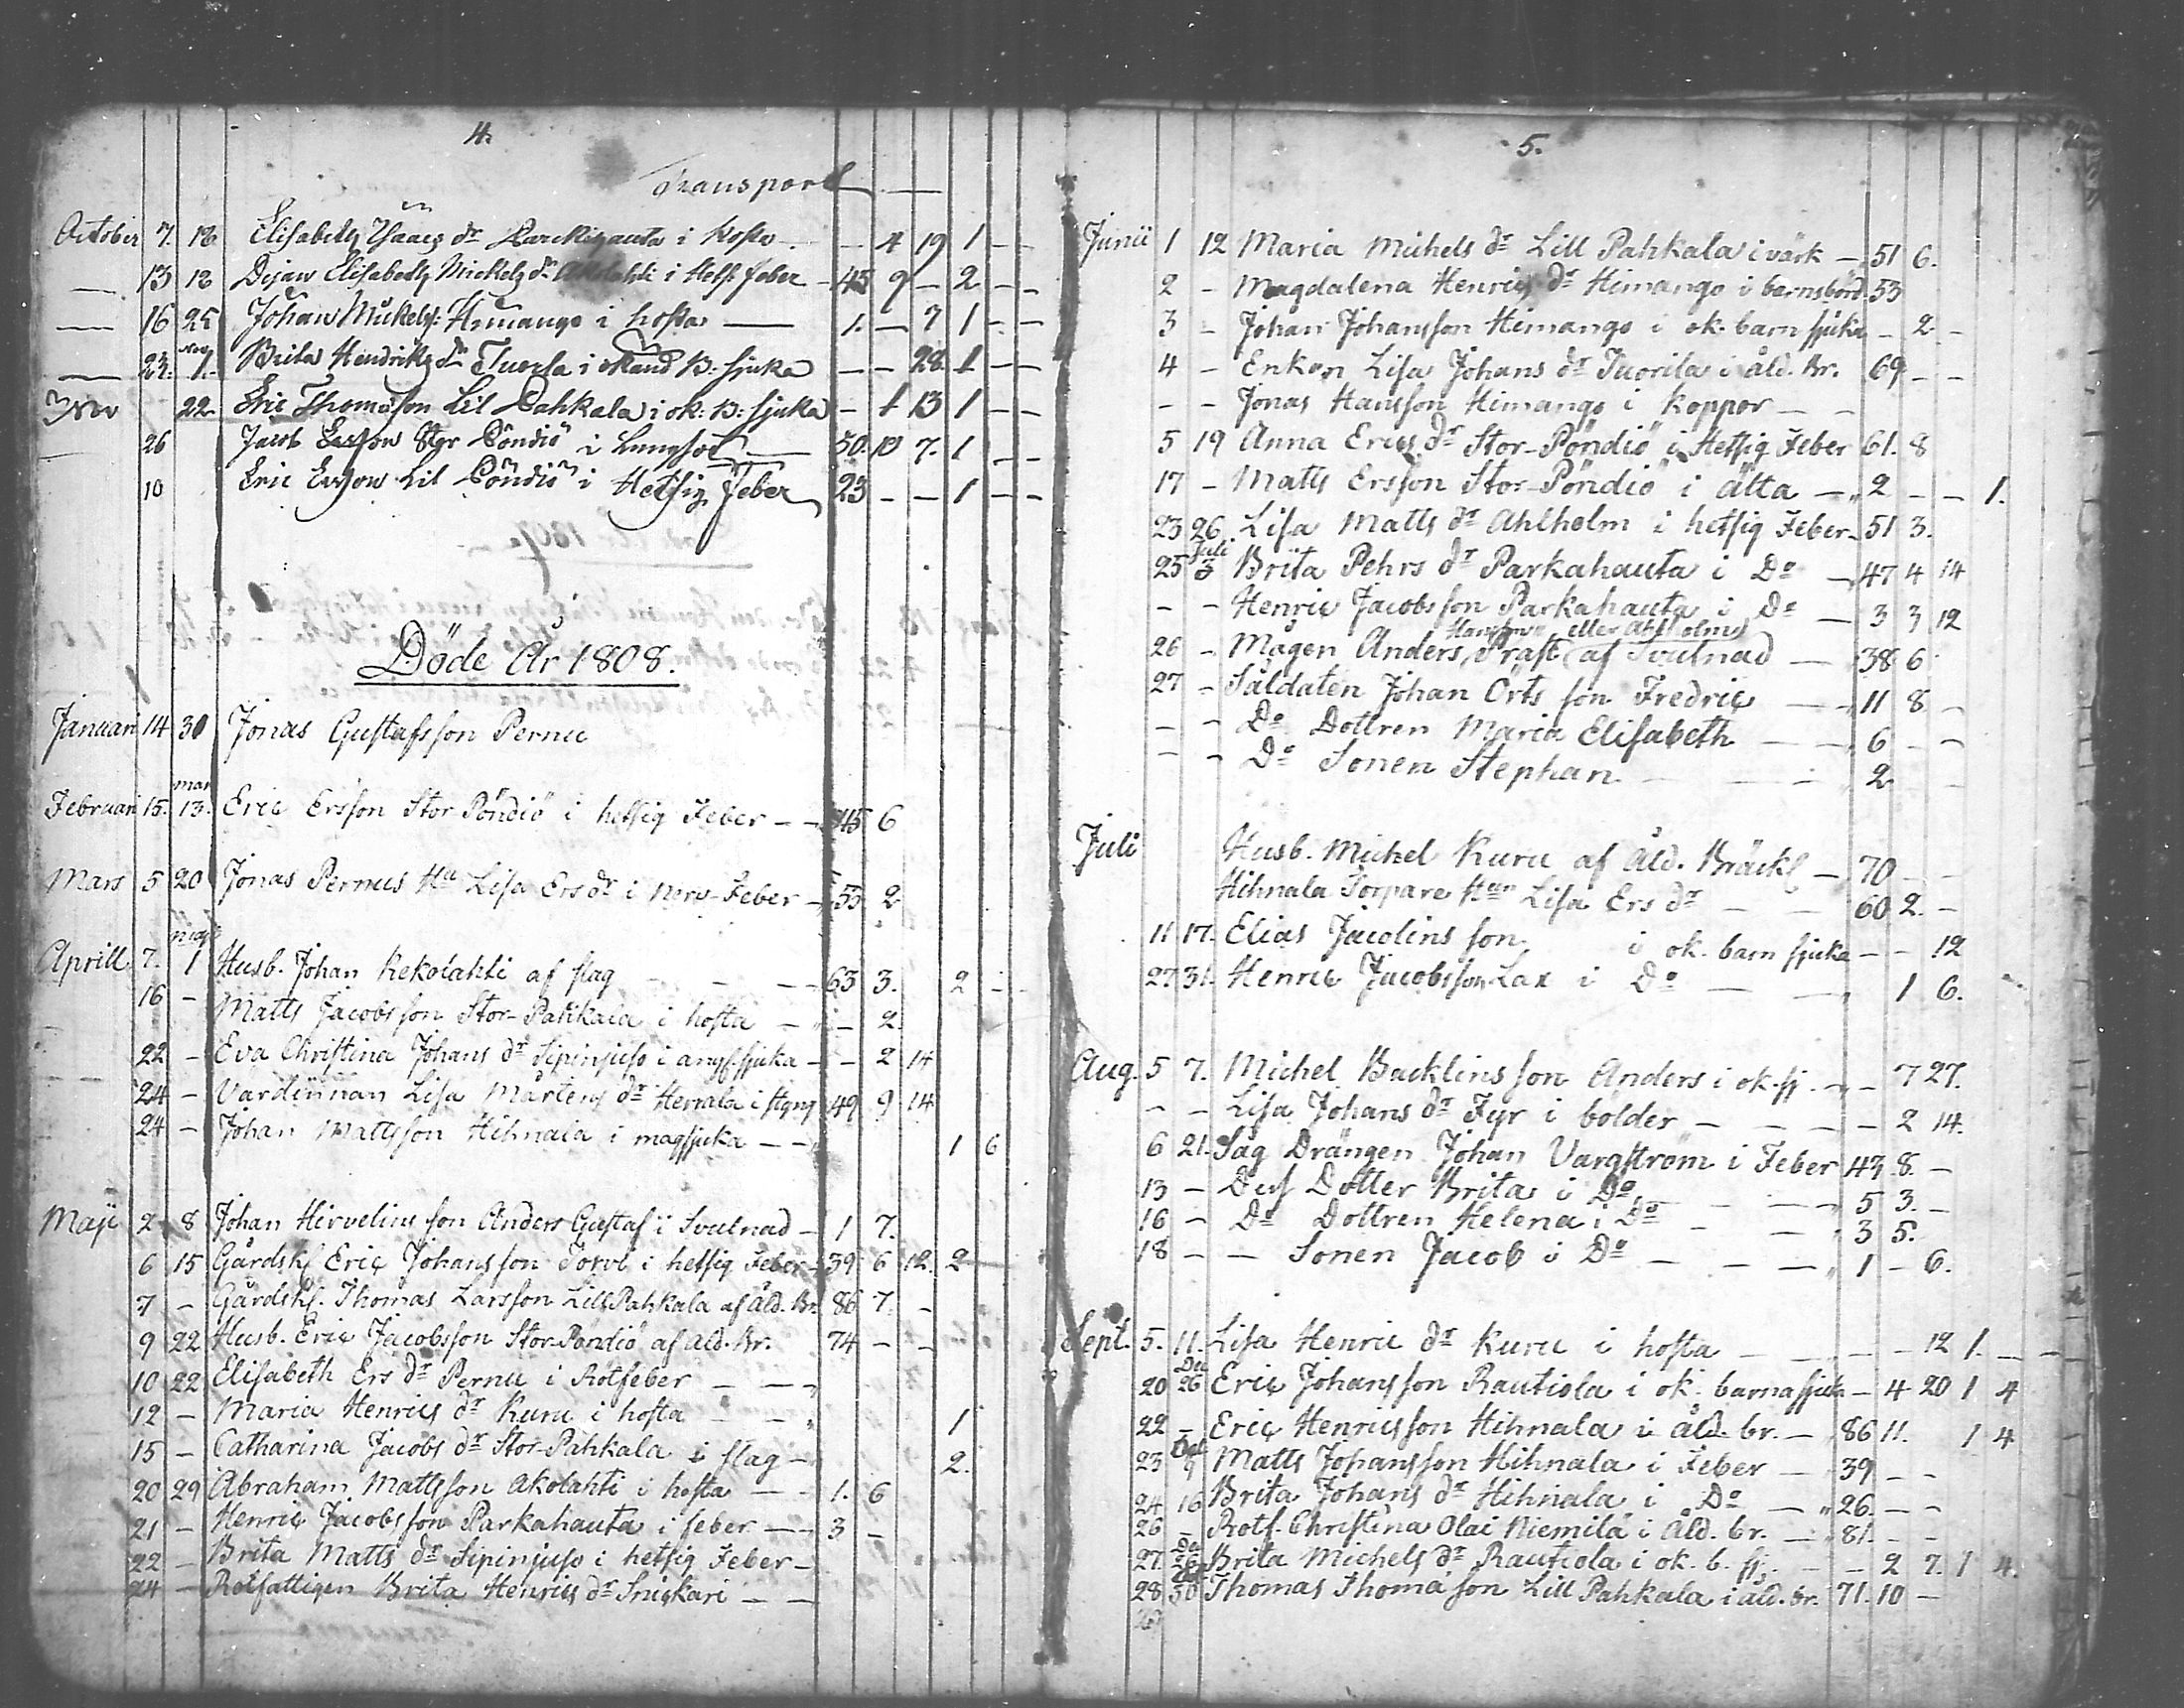 4.
Transport
October 7. 18 Elisabeth Isaacs dr Parckihauta i hosta - - 4 19 1 - -
13 18 Pigan Elisabeth Mickels dr Akolahti i Hets. feber - 45 9 - 2 - -
16 25 Johan Mickels: Himango i hosta 1. - 7 1 - -
Nov
24. 1. Brita Hendriks dr Tuorla i okänd B: sjuka - - 28. 1 - -
Nov 22 Eric Thomasson Lil Pahkala i ok: B: sjuka - 1 13 1 - -
26 Jacob Ersson Stor Pöndiö i Lungsot 50. 10 7. 1 - -
10 Eric Ersson Lil Pöndiö i Hetsig Feber 23 - - 1 - -
Döde År 1808.
Januari 14 30 Jonas Gustafsson Pernu
mar
Februari 15. 13. Eric Ersson Stor Pöndiö i hetsig Feber - - 45 6
Mars 5 20 Jonas Pernus Hu Lisa Ers dr i Nerv-Feber - 53 2
maji
Aprill 7. 1 Husb. Johan Kekolahti af slag - - 63 3. 2 - -
16 - Matts Jacobsson Stor-Pahkala i hosta - - 2.
22 - Eva Christina Johans dr Sipinjuso i ansf. sjuka - - 2 14
24 - Värdinnan Lisa Mårtens dr Herrala i styng 49 9 14
24 - Johan Mattsson Hihnala i magsjuka - - 1 6
Maji 2 8 Johan Hirvelins son Anders Gustaf i Svulnad - 1 7.
6 15 Gårdsk Eric Johansson Torvi i hetsig Feber - 39 6 12. 2
7 - Gårdsk. Thomas Larsson Lill Pahkala af åld. Br. 86 7. -
9 22 Husb. Eric Jacobsson Stor-Pöndiö af åld. Br. 74 - -
10 22 Elisabeth Ers dr Pernu i Rötfeber - - -
12 - Maria Henrics dr Kuru i hosta - - 1
15 - Catharina Jacobs dr Stor-Pahkala i slag - 2.
20 29 Abraham Mattsson Akolahti i hosta - - 1. 6
21 - Henric Jacobsson Parkahauta i feber - - 3 -
22 - Brita Matts dr Sipinjuso i hetsig Feber -
24 - Rotfattigen Brita Henrics dr Sniskari - -
5.
Junii 1 12 Maria Michels dr Lill Pahkala i värk - 51 6.
2 - Magdalena Henrics dr Himango i barnsbörd. 53
3 - Johan Johansson Himango i ok. barn sjuka - 2 -
4 - Enkan Lisa Johans dr Tuorila i åld. Br. 69 - -
- - Jonas Hansson Himango i koppor - -
5 19 Anna Erics dr Stor-Pöndiö i Hetsig Feber 61. 8
17 - Matts Ersson Stor-Pöndiö i ätta - 2 - - 1.
23 26 Lisa Matts dr Ahlholm i hetsig Feber - 51 3.
Juli
25 3 Brita Pehrs dr Parkahauta i Do - 47 4 14
- - Henric Jacobsson Parkahauta i Do - 3 3 12
Hansson eller Ahlholm
26 - Mågen Anders Präst af Svulnad - 38 6
27 - Såldaten Johan Örts son Fredric - - 11 8 -
- - Do Dottren Maria Elisabeth - - 6 - -
- - Do Sonen Stephan - - 2 -
Juli Husb. Michel Kuru af åld. Bräckl - 70 - -
Hihnala Torpare Hun Lisa Ers dr - - 60 2. -
11 17. Elias Jacolins son i ok. barn sjuka - - 12
27 31. Henric Jacobsson Lax i Do - - 1 6.
Aug. 5 7. Michel Backlins son Anders i ok. sj. - - 7 27.
- - Lisa Johans dr Fyr i bolder - - - - 2 14.
6 21. Såg Drängen Johan Vargström i Feber 43 8. -
13 - Dess Dotter Brita i Do - - - 5 3. -
16 - Do Dottren Helena i Do - - 3 5.
18 - - Sonen Jacob i Do - - - 1 - 6.
Sept. 5. 11. Lisa Henric dr Kuru i hosta - - - - 12 1. - -
20 26 Eric Johansson Rautiola i ok. barnasjuka - 4 20 1 4
22 - Eric Henricsson Hihnala i åld. br. - 86 11. 1 4
23 9 Matts Johansson Hihnala i Feber - 39 - -
24 16 Brita Johans dr Hihnala i Do - 26. - -
26 - Rotf. Christina Olai Niemilä i åld. br. - 81. - -
27. Brita Michels dr Rautiola i ok. b. sj. - - 2 7. 1 4.
28 30 Thomas Thomasson Lill Pahkala i åld. br. 71. 10 -